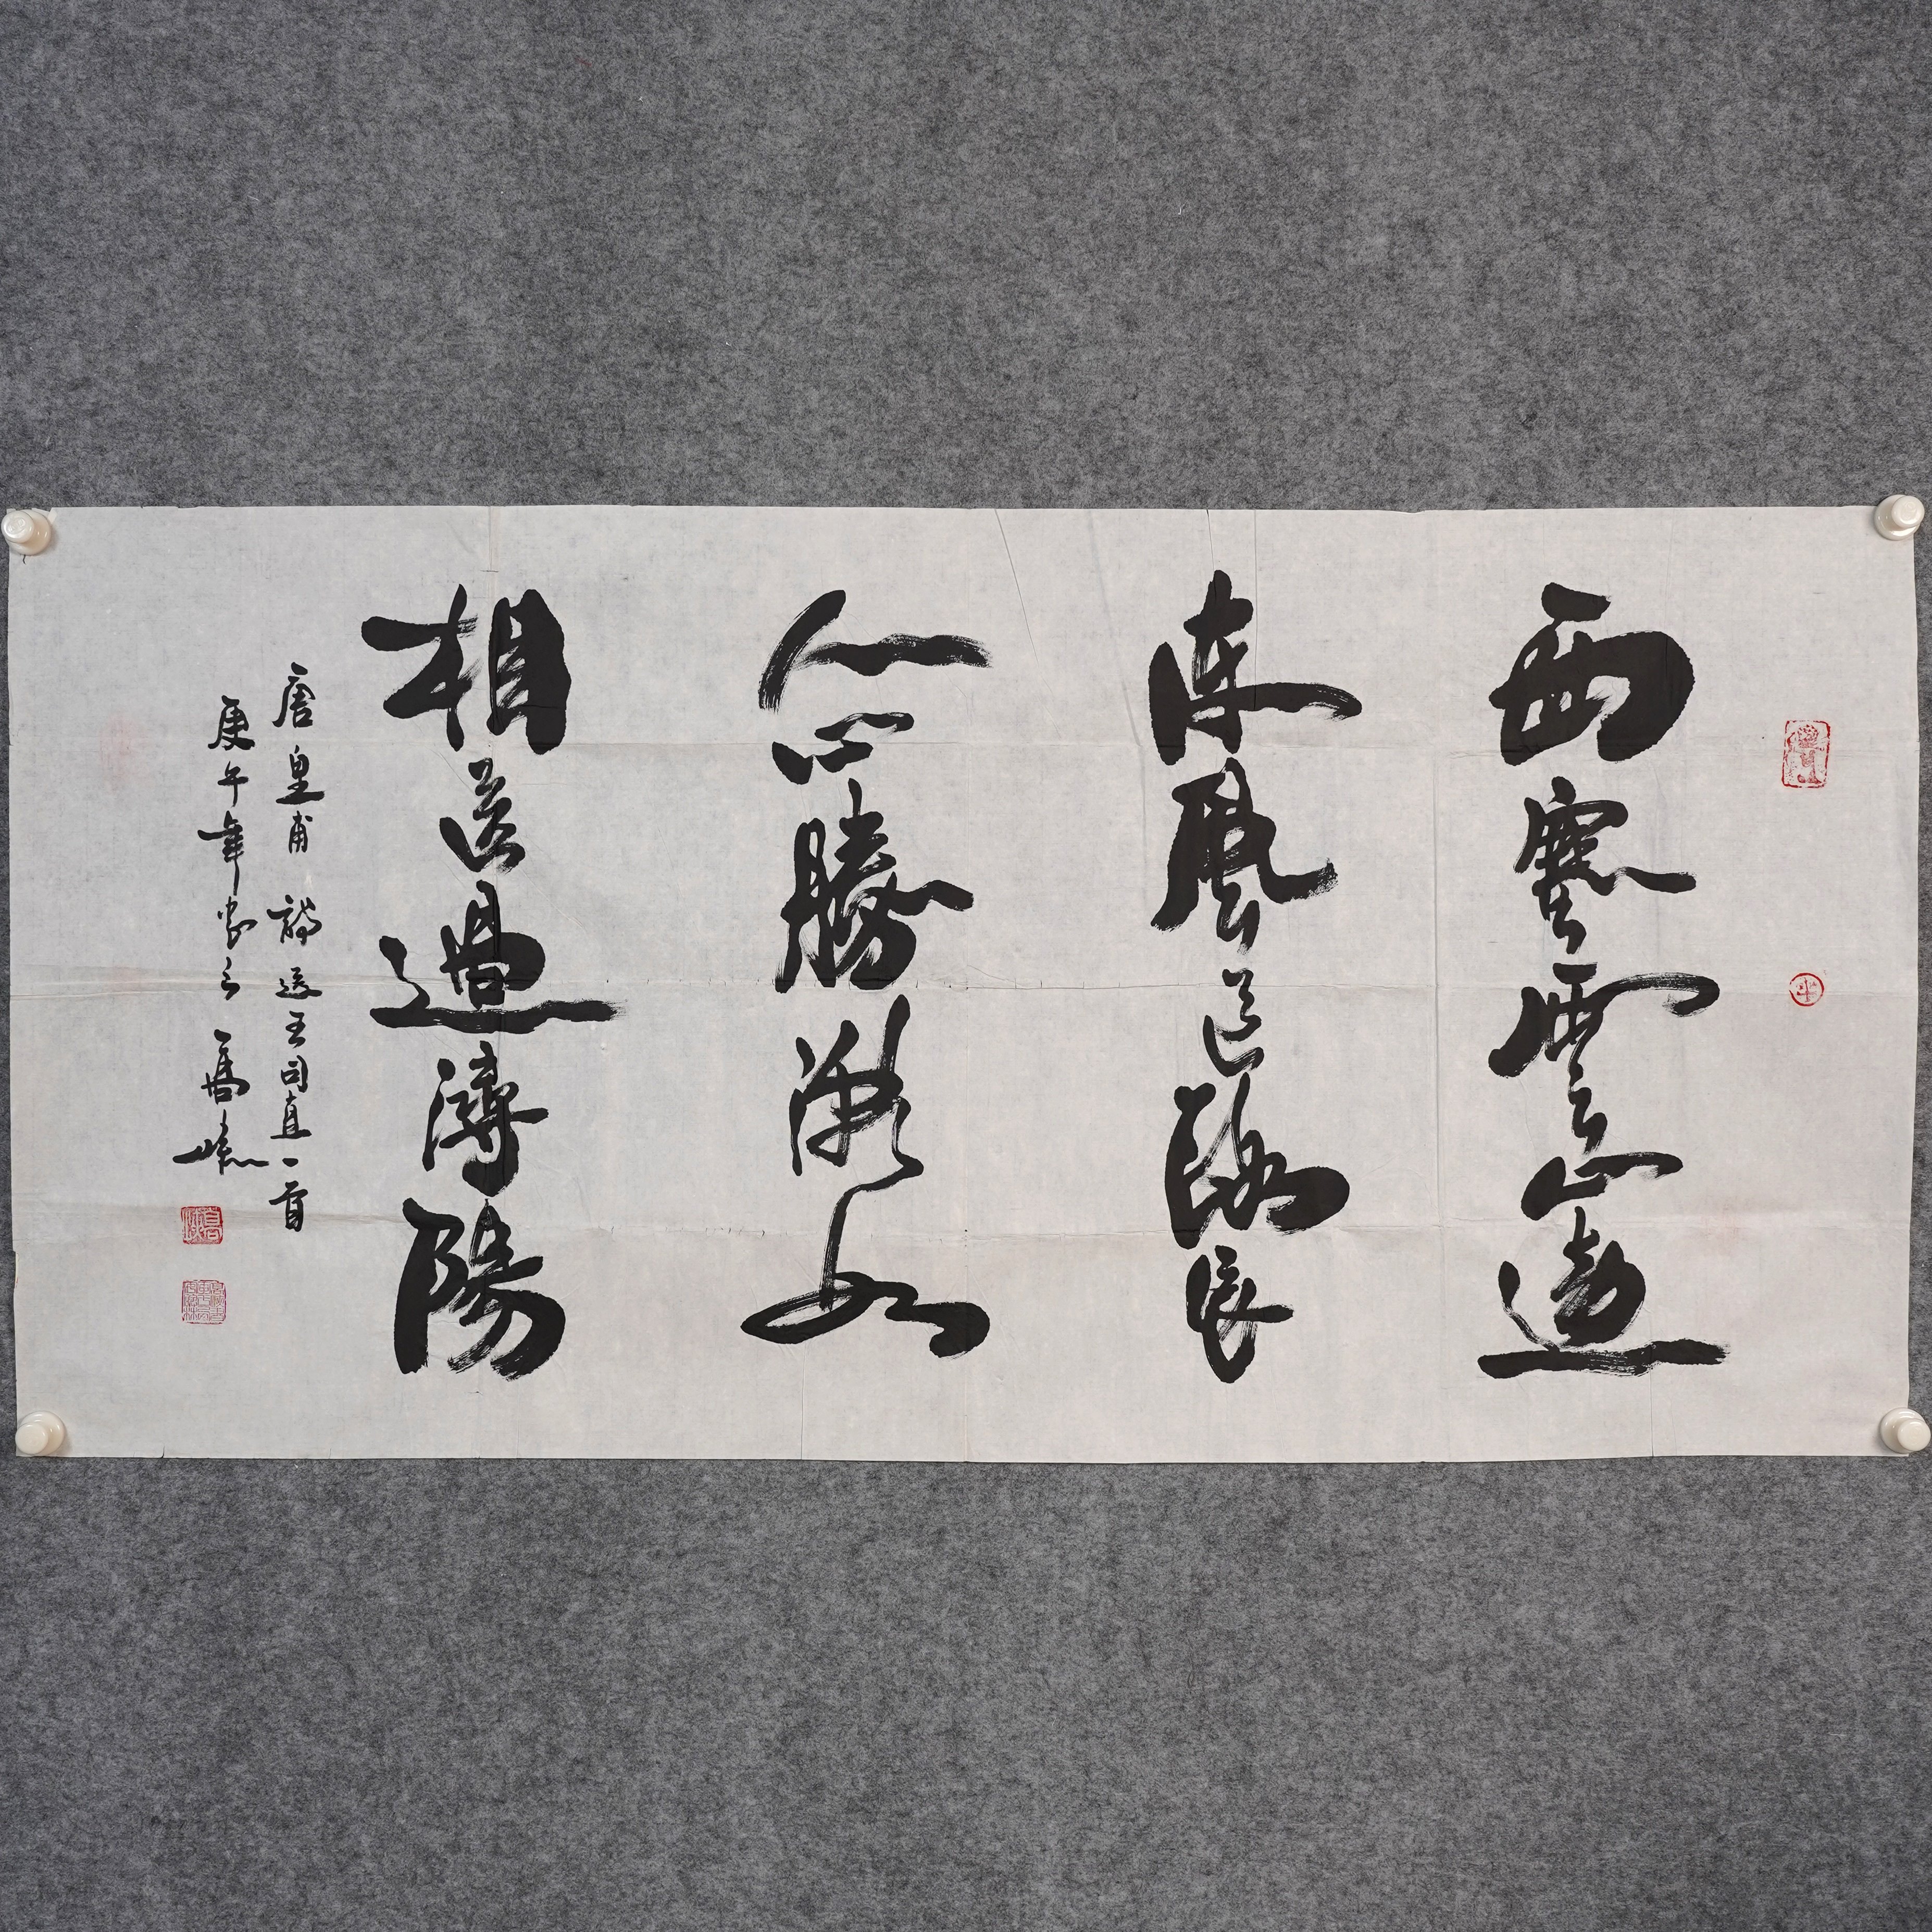 西塞雲山遠
東風道路長
人心勝潮水
相送過潯陽
唐皇甫 詩送王司直一首
庚午年 之 高